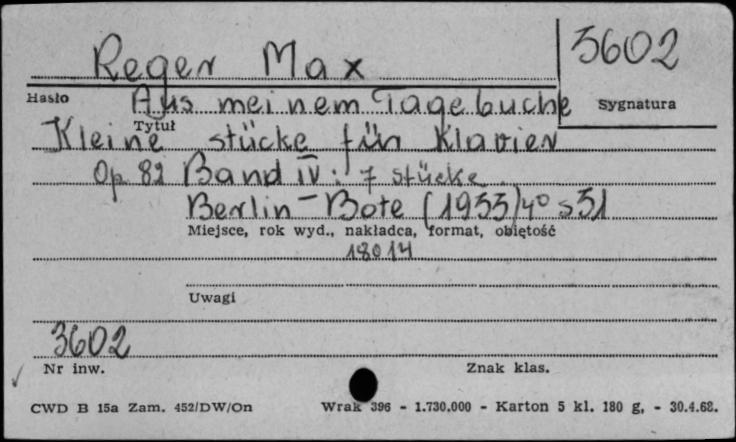 Reger Max
3602
Hasło
Aus meinem Tagebuche
Sygnatura
Tytuł
Kleine stücke für Klavier
Op. 82 Band IV: 7 stücke
Berlin - Bote (1953) 4° s 31
Miejsce, rok wyd., nakładca, format, objętość
18014
Uwagi
3602
Nr inw.
Znak klas.
CWD B 15a Zam. 452/DW/On
Wrak 396 - 1.730.000 - Karton 5 kl. 180 g. - 30.4.68.